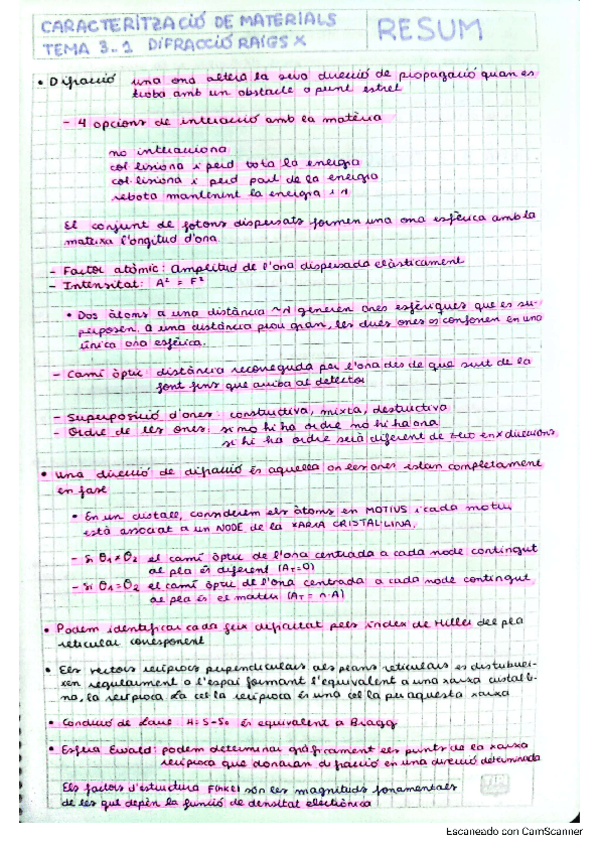 CARACTERITZACIÓ DE MATERIALS
TEMA 3.1 DIFRACCIÓ RAIGS X
RESUM
• Difracció una ona altera la seva direcció de propagació quan es
troba amb un obstacle o punt estret
- 4 opcions de interacció amb la matèria
no interacciona
col·lisiona i perd tota la energia
col·lisiona i perd part de la energia
rebota mantenint la energia i λ
El conjunt de fotons dispersats formen una ona esfèrica amb la
mateixa longitud d'ona
- Factor atòmic: Amplitud de l'ona dispersada elàsticament
- Intensitat: A² = F²
• Dos àtoms a una distància ~λ generen ones esfèriques que es su-
perposen. A una distància prou gran, les dues ones es confonen en una
única ona esfèrica.
- Camí òptic: distància recorreguda per l'ona des de que surt de la
font fins que arriba al detector
- Superposició d'ones: constructiva, mixta, destructiva
- Ordre de les ones: si no hi ha ordre no hi ha ona
si hi ha ordre serà diferent de zero en x direccions
• una direcció de difracció és aquella on les ones estan completament
en fase
• En un cristall, considerem els àtoms en MOTIUS i cada motiu
està associat a un NODE de la XARXA CRISTAL·LINA,
- si θ₁≠θ₂ el camí òptic de l'ona centrada a cada node contingut
al pla és diferent (AT=0)
- si θ₁=θ₂ el camí òptic de l'ona centrada a cada node contingut
al pla és el mateix (AT = n·A)
• Podem identificar cada feix difractat pels índex de Miller del pla
reticular corresponent
• Els vectors recíprocs perpendiculars als plans reticulars es distribuei-
xen regularment a l'espai formant l'equivalent a una xarxa cristal·li-
na, la recíproca. La cel·la recíproca és una cel·la per aquesta xarxa
• Condició de Laue H=S-S₀ és equivalent a Bragg
• Esfera Ewald: podem determinar gràficament els punts de la xarxa
recíproca que donaran difracció en una direcció determinada
Els factors d'estructura F(hkl) són les magnituds fonamentals
de les qui depèn la funció de densitat electrònica
Escaneado con CamScanner